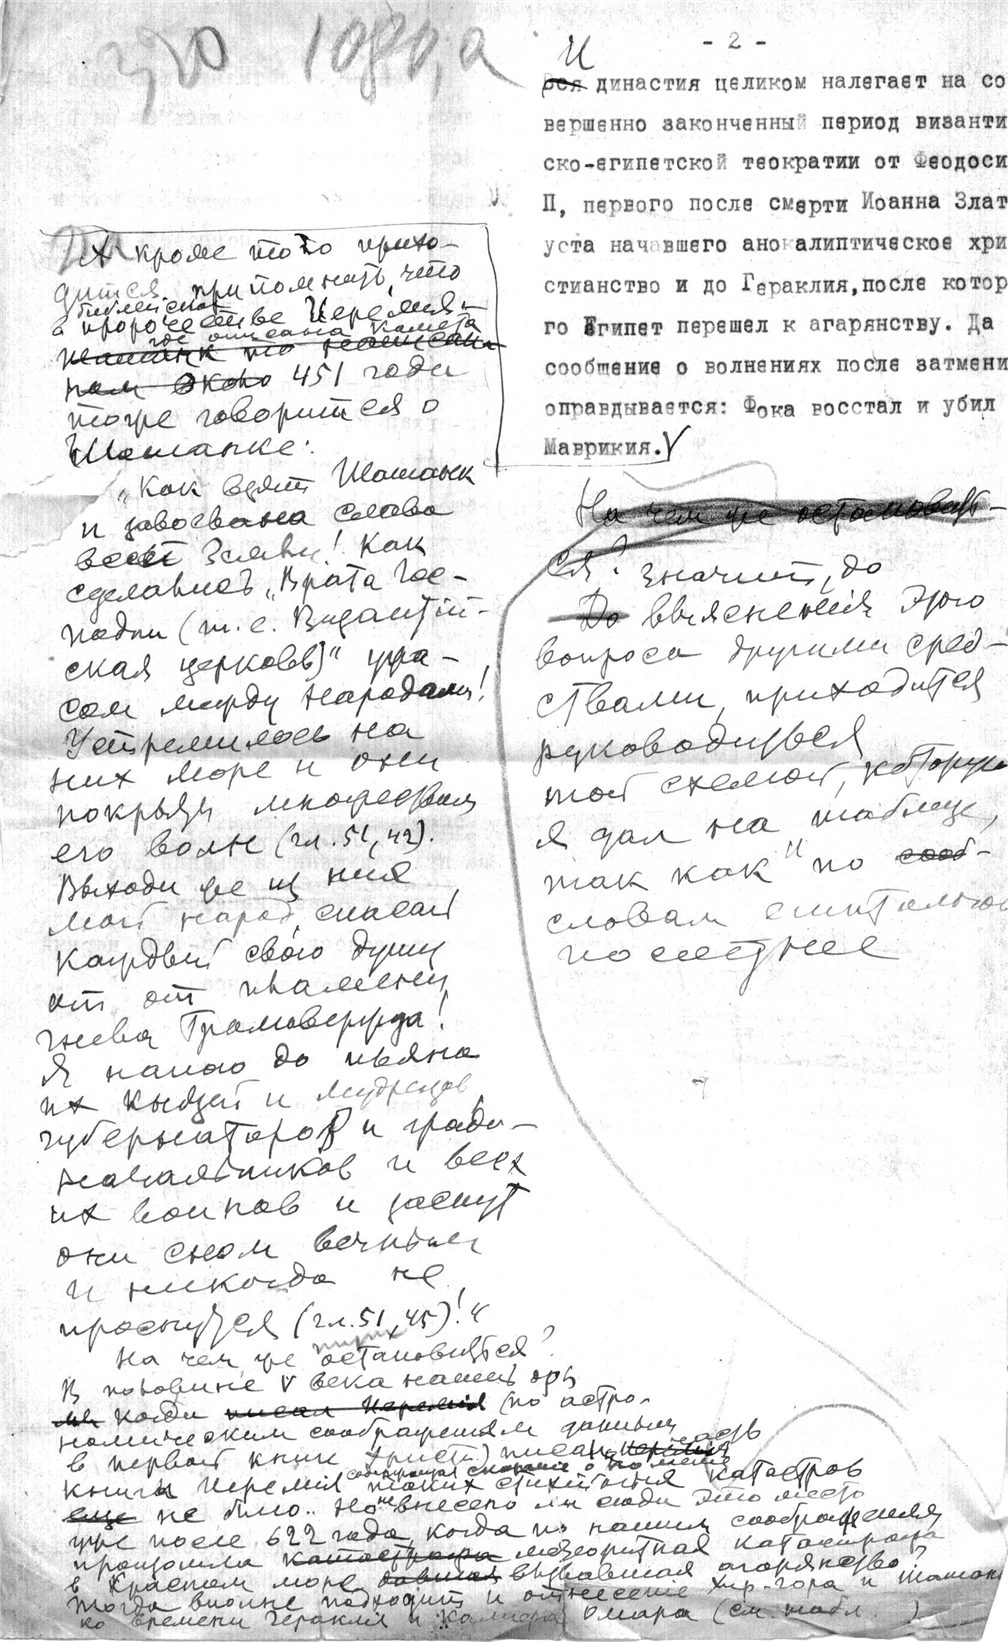 - 2 -
И
вся династия целиком налегает на со
вершенно законченный период византи
ско-египетской теократии от Феодоси
П, первого после смерти Иоанна Злат
уста начавшего апокалиптическое хри
стианство и до Гераклия, после котор
го Египет перешел к агарянству. Да
сообщение о волнениях после затмени
оправдывается: Фока восстал и убил
Маврикия.
На чем же остановить-
ся? Значит, до
До выяснения этого
вопроса другими сред-
ствами, приходится
руководиться
той схемой, которую
я дал на таблице,
так как по сооб-
словам
А кроме того прихо-
дится припомнить, что
библейском
в пророчестве Иеремия
где описана комета
около 451 года
тоже говорится о
Шешанке:
„Как взят Шешанк
и завоевана слава
всей Земли! Как
сделались „Врата Гос-
подни (т.е. Византий-
ская церковь)“ ужа-
сом между народами!
Устремилось на
них море и они
покрыты множеством
его волн (гл. 51, 42).
Выходи же из нея
мой народ, спасай
каждый свою душу
от от пламени
гнева Громовержца!
Я напою до пьяна
их князей и мудрецов
губернаторов и градо-
начальников и всех
их воинов и заснут
они сном вечным
и никогда не
проснутся (гл. 51, 45)!“
На чем же остановиться?
В половине V века нашей эры
когда писал Иеремия (по астро-
номическим соображениям данным
в первой книге Христа) писал часть
книги Иеремия таких катастроф
еще не было. Но не внесено ли сюда это место
уже после 622 года, когда по нашим соображениям
произошла катастрофа метеоритная катастрофа
в Красном море вызвавшая агарянство?
Тогда вполне подходит и отнесение
ко времени Гераклия и Омара (см. табл. )